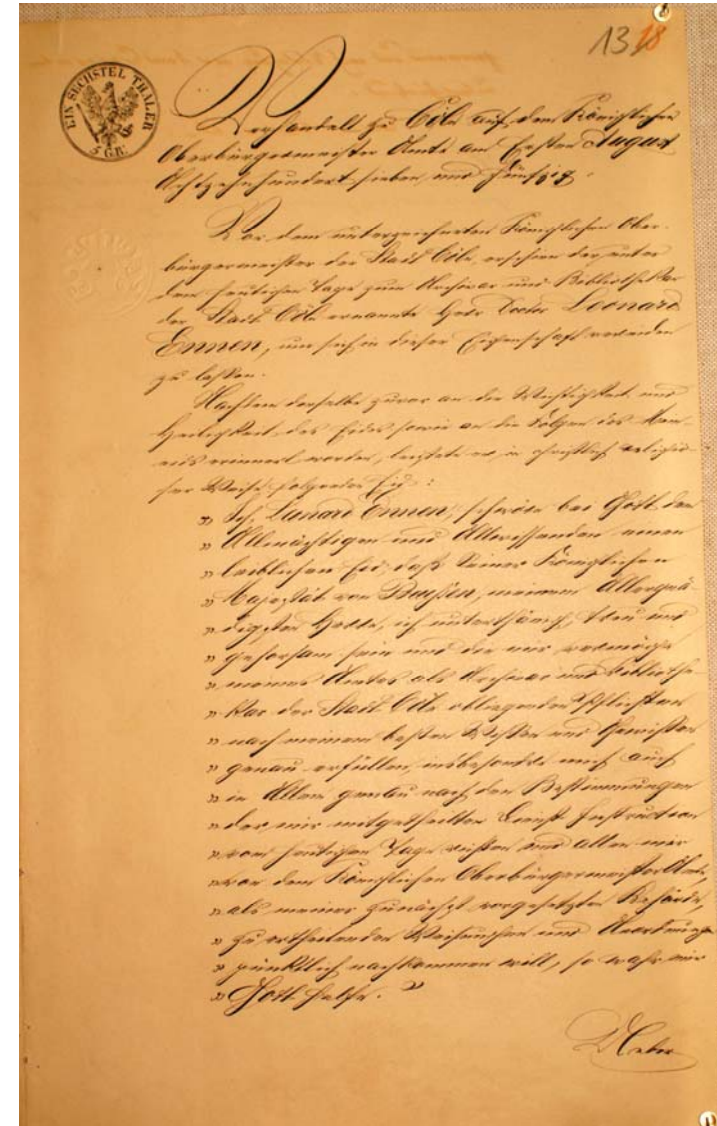 13
18
EIN SECHSTEL THALER
5 GR.
Verhandelt zu Cöln auf dem Königlichen
Oberbürgermeister Amte am Ersten August
Achtzehnhundert sieben und fünfzig.
Vor dem unterzeichneten Königlichen Ober-
bürgermeister der Stadt Cöln erschien der unter
dem heutigen Tage zum Archivar und Bibliothekar
der Stadt Cöln ernannte Herr Leonard
Ennen, um sich in dieser Eigenschaft vereiden
zu lassen.
Nachdem derselbe zuvor an die Wichtigkeit und
Heiligkeit des Eides sowie an die Folgen des Mein-
eids erinnert worden, leistete er, in christlich religiö-
ser Weise folgenden Eid:
" Ich, Leonard Ennen, schwöre bei Gott dem
" Allmächtigen und Allwissenden einen
" leiblichen Eid, daß Seiner Königlichen
" Majestät von Preußen, meinem Allergnä-
" digsten Herrn, ich unterthänig, treu und
" gehorsam sein und die mir vermöge
" meines Amtes als Archivar und Bibliothe-
" kar der Stadt Cöln obliegenden Pflichten
" nach meinem besten Wissen und Gewissen
" genau erfüllen, insbesondere mich auch
" in Allem genau nach den Bestimmungen
" der mir mitgetheilten Dienst Instruction
" vom heutigen Tage richten und allen mir
" von dem Königlichen Oberbürgermeister Amte,
" als meiner zunächst vorgesetzten Behörde,
" zu ertheilenden Weisungen und Anordnungen
" pünktlich nachkommen will, so wahr mir
" Gott helfe. "